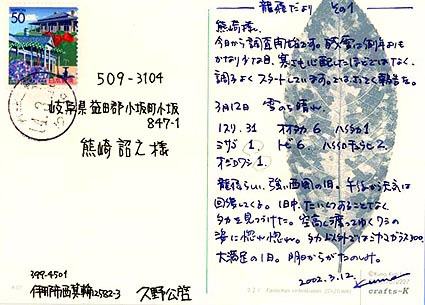 50
日本郵便
509-3104
岐阜県益田郡小坂町小坂
847-1
熊崎 詔之 様
399-4501
伊那市西箕輪12582-3 久野公啓
龍飛だより その1
熊崎様.
今日から調査開始です。残雪は例年よりも
かなり少な目、寒さも心配したほどではなく、
調子よくスタートしています。
3月12日 雪のち晴れ
ノスリ 31 オオタカ 6 ハイタカ 1
ミサゴ 1. トビ 6. ハイイロチュウヒ 2.
オオワシ 1.
龍飛らしい、強い西風の1日。午後から天気は
回復してくる。1日中、たいくつすることなく
タカを見つけた。空高く渡ってゆくワシの
姿に惚れ惚れ。タカ以外ではミヤマガラス300.
大満足の1日。明日からがたのしみ。
2002.3.12.
crafts-K